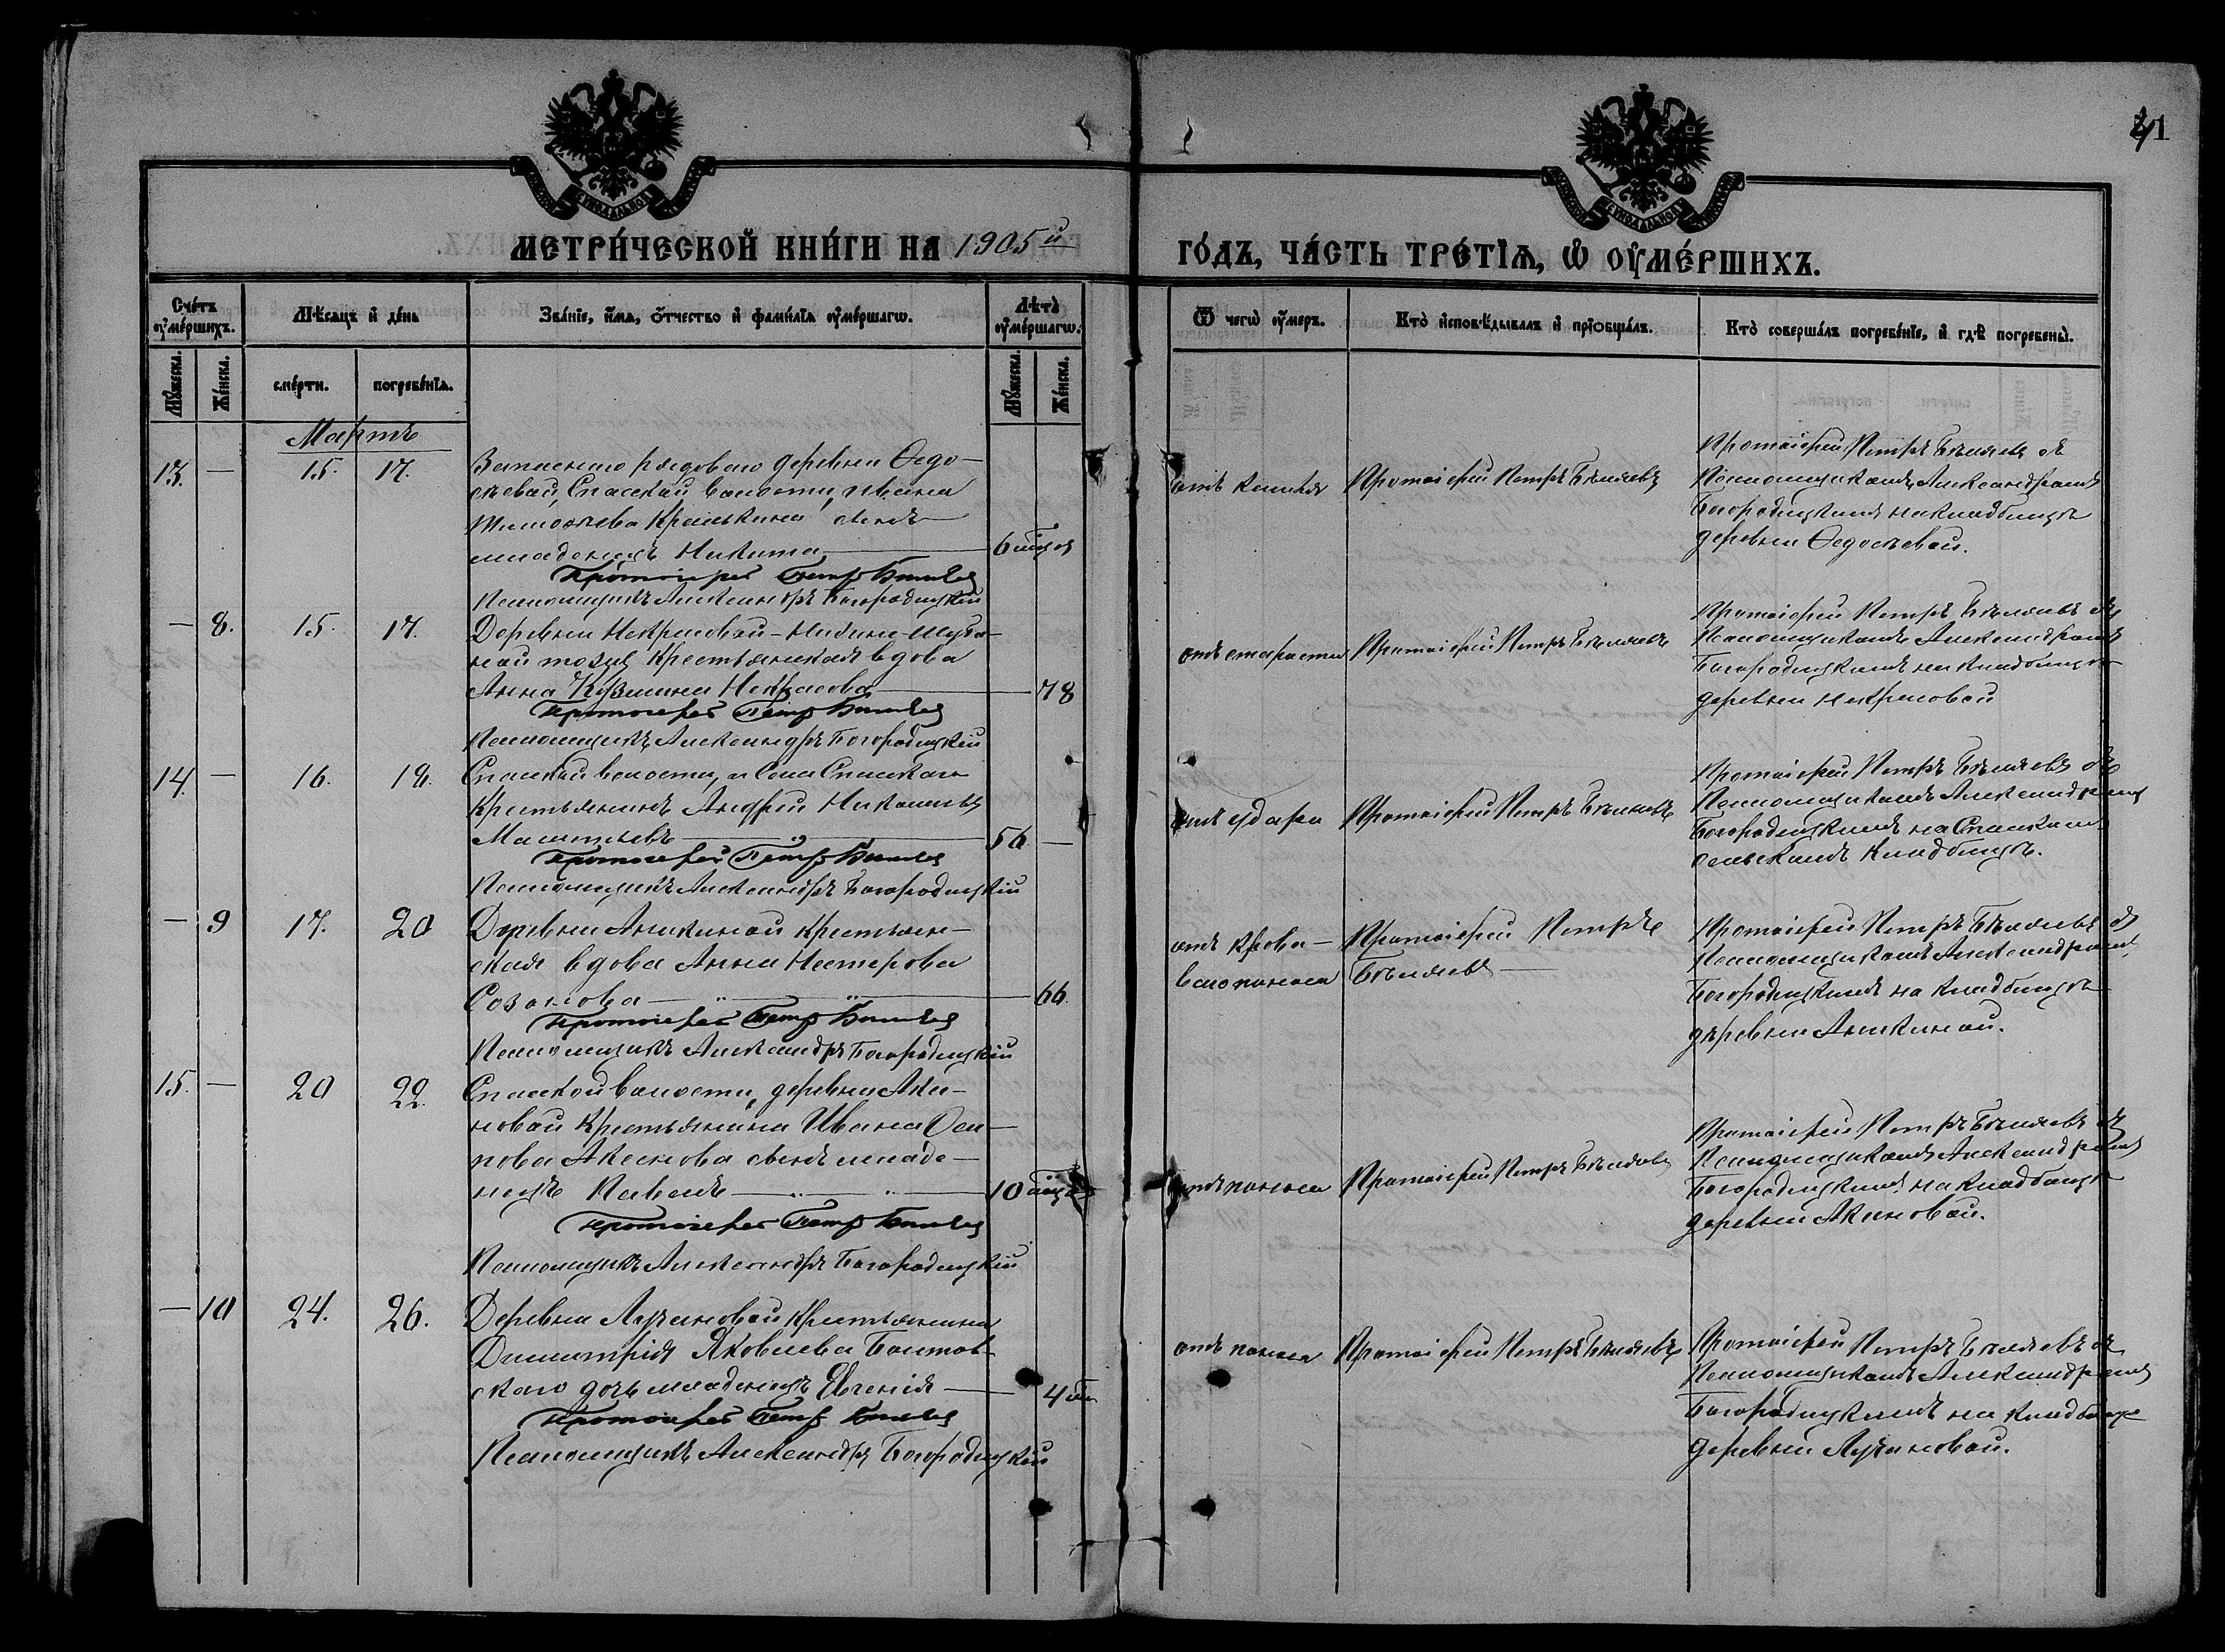 41
МЕТРИ́ЧЕСКОЙ КНИ́ГИ НА 1905й ГО́ДЪ, ЧА́СТЬ ТРЕ́ТІѦ, Ѡ ОУ҆МЕ́РШИХЪ.
Сче́тъ оу҆ме́ршихъ.
Мѣ́сѧцъ и҆ де́нь
Зва́нїе, и҆́мѧ, ѻ҆́тчество и҆ фамѝлїѧ оу҆ме́ршагѡ.
Лѣ́та оу҆ме́ршагѡ.
Ѿ чегѡ̀ оу҆́меръ.
Кто̀ и҆сповѣ́дывалъ и҆ прїѡбща́лъ.
Кто̀ соверша́лъ погребе́нїе, и҆ гдѣ̀ погребены̀.
Мꙋ́жеска.
Же́нска.
сме́рти.
погребе́нїѧ.
Мꙋ́жеска.
Же́нска.
Мартъ
13. — 15. 17.
Запаснаго рядоваго деревни Ѳедо-
сѣевой, Спасской волости, Ивана
Тимоѳѣева сынъ
младенецъ Никита
6 мцов
Протоіерей Петръ Бѣляевъ
Псаломщикъ Александръ Богородицкій
отъ кашля
Протоіерей Петръ Бѣляевъ
Протоіерей Петръ Бѣляевъ съ
Псаломщикомъ Александромъ
Богородицкимъ на кладбищѣ
деревни Ѳедосѣевой.
— 8. 15. 17.
Деревни Некрасовой-
тожъ крестьянская вдова
Анна Кузьмина Некрасова
78
Протоіерей Петръ Бѣляевъ
Псаломщикъ Александръ Богородицкій
отъ старости
Протоіерей Петръ Бѣляевъ
Протоіерей Петръ Бѣляевъ съ
Псаломщикомъ Александромъ
Богородицкимъ на кладбищѣ
деревни Некрасовой
14. — 16. 18.
Спасской волости, и Села Спасскаго
крестьянинъ Андрей Николаевъ
56 —
Протоіерей Петръ Бѣляевъ
Псаломщикъ Александръ Богородицкій
отъ удара
Протоіерей Петръ Бѣляевъ
Протоіерей Петръ Бѣляевъ съ
Псаломщикомъ Александромъ
Богородицкимъ на Спасскомъ
сельскомъ кладбищѣ.
— 9 17. 20
Деревни Аникиной крестьян-
ская вдова Анна Нестерова
Созонова
66.
Протоіерей Петръ Бѣляевъ
Псаломщикъ Александръ Богородицкій
отъ крова-
ваго поноса
Протоіерей Петръ
Бѣляевъ
Протоіерей Петръ Бѣляевъ съ
Псаломщикомъ Александромъ
Богородицкимъ на кладбищѣ
деревни Аникиной.
15. — 20 22.
Спасской волости, деревни Аки-
новой крестьянина Ивана Оси-
пова Аксенова сынъ младе-
нецъ Павелъ
10 мцов
Протоіерей Петръ Бѣляевъ
Псаломщикъ Александръ Богородицкій
отъ поноса
Протоіерей Петръ Бѣляевъ
Протоіерей Петръ Бѣляевъ съ
Псаломщикомъ Александромъ
Богородицкимъ на кладбищѣ
деревни Акиновой.
— 10 24. 26.
Деревни Лучановой крестьянина
Димитрія Яковлева Болтов-
скаго дочь младенецъ Евгенія
4
Протоіерей Петръ Бѣляевъ
Псаломщикъ Александръ Богородицкій
отъ поноса
Протоіерей Петръ Бѣляевъ
Протоіерей Петръ Бѣляевъ съ
Псаломщикомъ Александромъ
Богородицкимъ на кладбищѣ
деревни Лучановой.